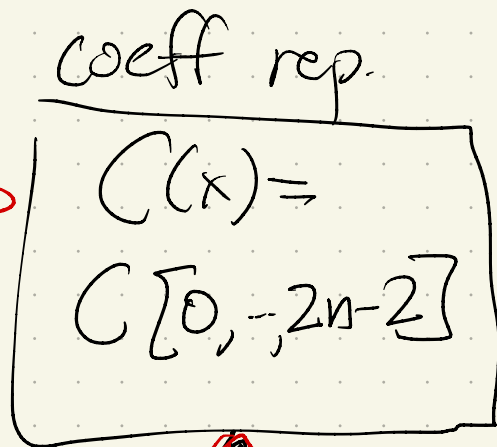 coeff rep.
C(x)=
C[0,--,2n-2]